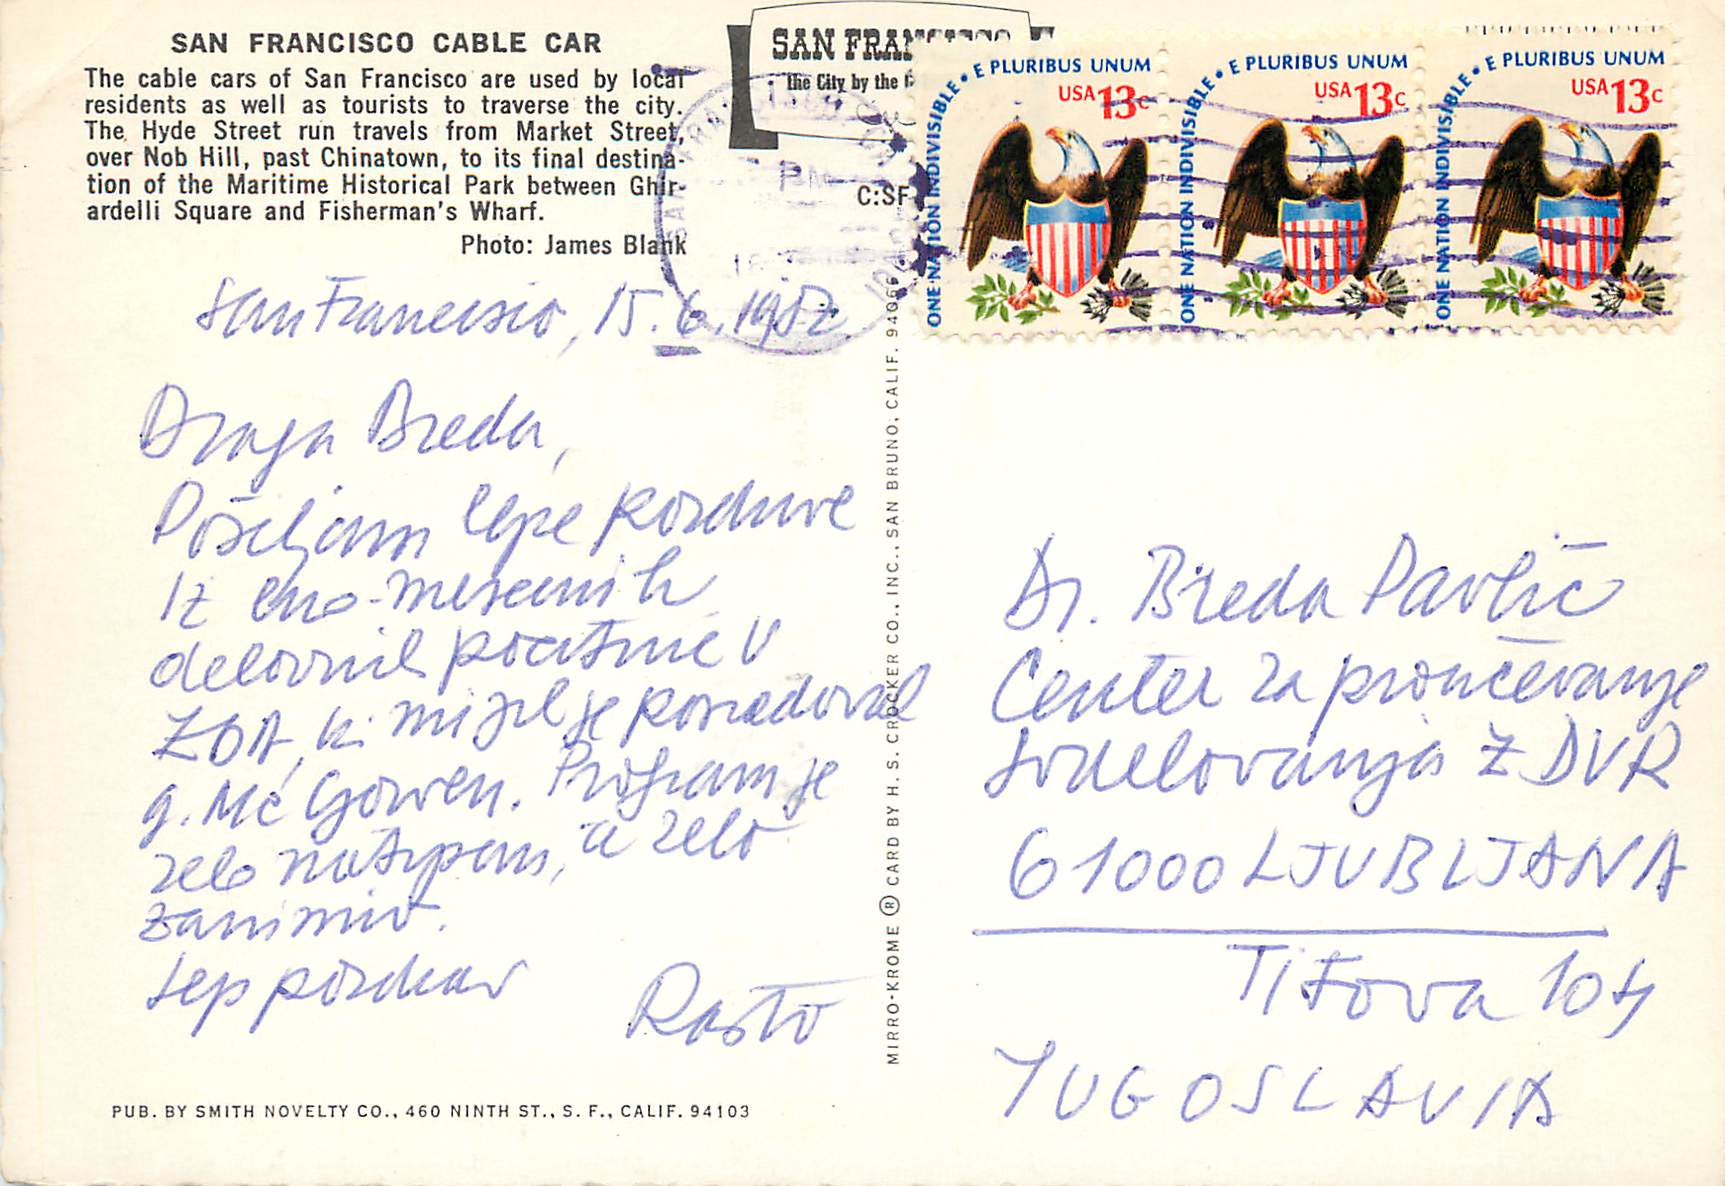 SAN FRANCISCO CABLE CAR
The cable cars of San Francisco are used by local
residents as well as tourists to traverse the city.
The Hyde Street run travels from Market Street,
over Nob Hill, past Chinatown, to its final destina-
tion of the Maritime Historical Park between Ghir-
ardelli Square and Fisherman's Wharf.
Photo: James Blank
SAN FRANCISCO
The City by the
C:SF
E PLURIBUS UNUM
USA 13c
ONE NATION INDIVISIBLE
E PLURIBUS UNUM
USA 13c
ONE NATION INDIVISIBLE
E PLURIBUS UNUM
USA 13c
ONE NATION INDIVISIBLE
PM
San Francisco, 15. 6. 1982
Draga Breda,
Pošiljam lepe pozdrave
iz eno-mesečnih
delovnih počitnic v
ZDA, ki mi jih je posredoval
g. Mc Gowen. Program je
zelo natrpan, a zelo
zanimiv.
Lep pozdrav
Rasto
PUB. BY SMITH NOVELTY CO., 460 NINTH ST., S. F., CALIF. 94103
MIRRO-KROME ® CARD BY H. S. CROCKER CO., INC., SAN BRUNO, CALIF. 94066
Dr. Breda Pavlič
Center za proučevanje
sodelovanja z DVR
61000 LJUBLJANA
Titova 104
YUGOSLAVIA